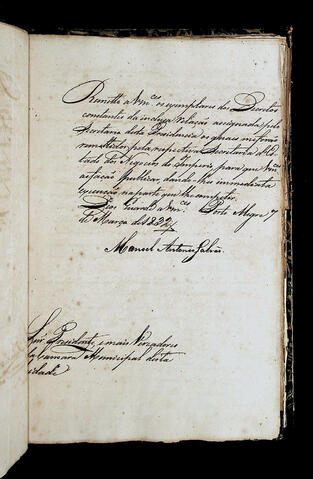 Remetto a Vm.ces os exemplares dos Decretos
constantes da incluza relação assignada pelo
Secretario desta Presidencia os quaes me forão
remettidos pela respectiva Secretaria d'Es-
tado dos Negocios do Imperio, para que Vm.ces
os fação publicar, dando-lhes immediata
execução na parte que lhes competir.
Deos Guarde a Vm.ces Porto Alegre 7
de Março de 183
Manoel Antonio Galvão
Snr.es Presidente, e mais Vereadores
da Camara Municipal desta
Cidade